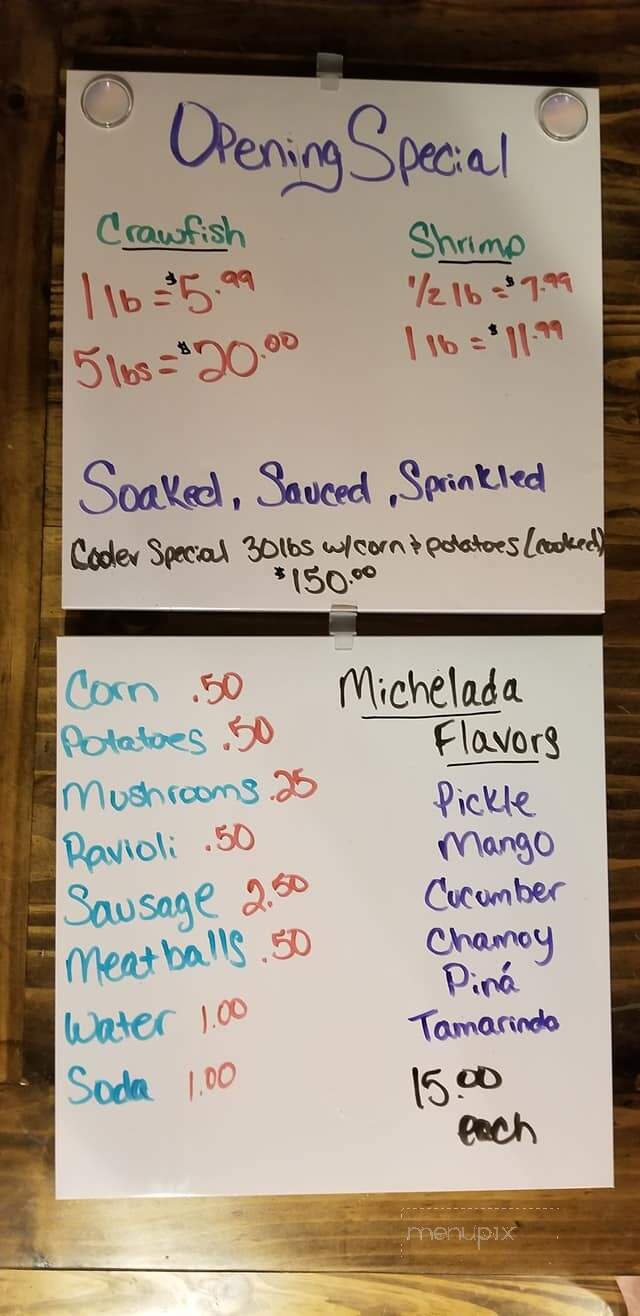 Opening Special
Crawfish
1 lb = $5.99
5 lbs = $20.00
Shrimp
1/2 lb = $7.99
1 lb = $11.99
Soaked, Sauced, Sprinkled
Cooler Special 30lbs w/corn & potatoes (cooked)
$150.00
Corn .50
Potatoes .50
Mushrooms .25
Ravioli .50
Sausage 2.50
Meatballs .50
Water 1.00
Soda 1.00
Michelada
Flavors
Pickle
Mango
Cucumber
Chamoy
Piná
Tamarindo
15.00
each
menupix